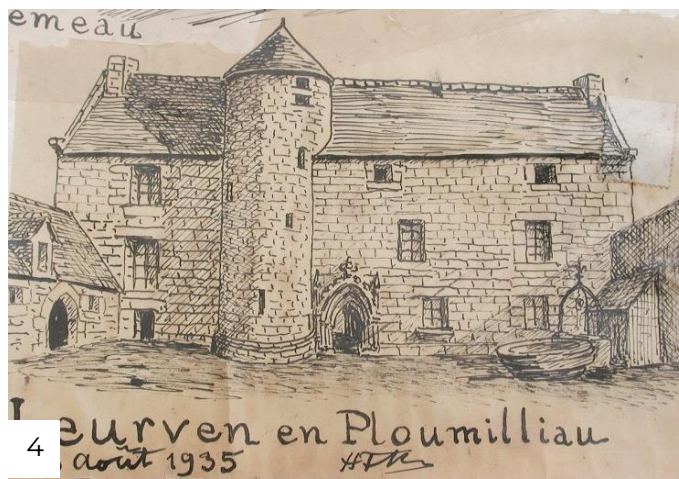 emeau
Leurven en Ploumilliau
août 1935
4